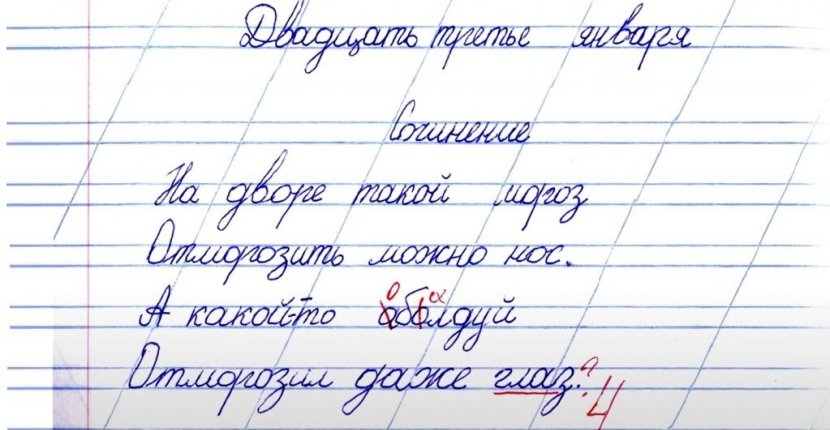 Двадцать третье января
Сочинение
На дворе такой мороз
Отморозить можно нос.
А какой-то аболдуй
Отморозил даже глаз.? 4